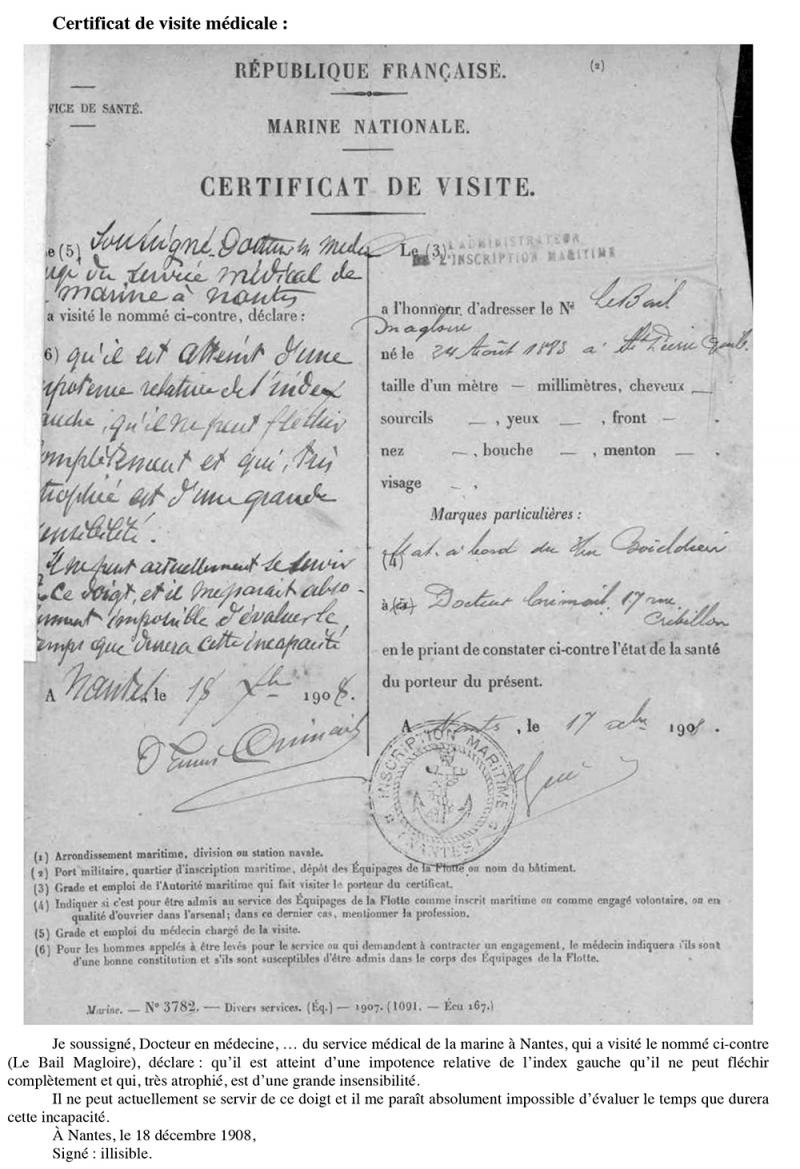 Certificat de visite médicale :
RÉPUBLIQUE FRANÇAISE.
(2)
VICE DE SANTÉ.
MARINE NATIONALE.
CERTIFICAT DE VISITE.
e (5) Soussigné, Docteur en méde
du service médical de
marine à Nantes
a visité le nommé ci-contre, déclare :
6) qu'il est atteint d'une
mpotence relative de l'index
auche, qu'il ne peut fléchir
complètement et qui, très
trophié est d'une grande
ensibilité.
Il ne peut actuellement se servir
ce doigt, et il me paraît abso-
ument impossible d'évaluer le
temps que durera cette incapacité
A Nantes, le 18 Xbre 1908.
Le (3) L'ADMINISTRATEUR
DE L'INSCRIPTION MARITIME
a l'honneur d'adresser le Né Le Bail
Magloire
né le 24 Août 1883 à St Pierre
taille d'un mètre — millimètres, cheveux —
sourcils —, yeux —, front — .
nez —, bouche —, menton — .
visage — .
Marques particulières :
(4) Mat. à bord du
à (5) Docteur 17 rue
Crébillon
en le priant de constater ci-contre l'état de la santé
du porteur du présent.
A Nantes, le 17 xbre 1908.
INSCRIPTION MARITIME
(NANTES)
(1) Arrondissement maritime, division ou station navale.
(2) Port militaire, quartier d'inscription maritime, dépôt des Équipages de la Flotte ou nom du bâtiment.
(3) Grade et emploi de l'Autorité maritime qui fait visiter le porteur du certificat.
(4) Indiquer si c'est pour être admis au service des Équipages de la Flotte comme inscrit maritime ou comme engagé volontaire, ou en
qualité d'ouvrier dans l'arsenal; dans ce dernier cas, mentionner la profession.
(5) Grade et emploi du médecin chargé de la visite.
(6) Pour les hommes appelés à être levés pour le service ou qui demandent à contracter un engagement, le médecin indiquera s'ils sont
d'une bonne constitution et s'ils sont susceptibles d'être admis dans le corps des Équipages de la Flotte.
Marine. — N° 3782. — Divers services. (Éq.) — 1907. (1091. — Écu 167.)
Je soussigné, Docteur en médecine, … du service médical de la marine à Nantes, qui a visité le nommé ci-contre
(Le Bail Magloire), déclare : qu'il est atteint d'une impotence relative de l'index gauche qu'il ne peut fléchir
complètement et qui, très atrophié, est d'une grande insensibilité.
Il ne peut actuellement se servir de ce doigt et il me paraît absolument impossible d'évaluer le temps que durera
cette incapacité.
À Nantes, le 18 décembre 1908,
Signé : illisible.